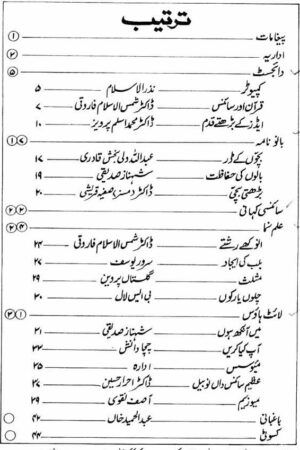 ترتیب
پیغامات ۱
اداریہ ۲
ڈائجسٹ ۵
کمپیوٹر نذر الاسلام ۵
قرآن اور سائنس ڈاکٹر شمس الاسلام فاروقی ۷
ایڈز کے بڑھتے قدم ڈاکٹر محمد اسلم پرویز ۱۰
بانو نامہ ۱۷
بچوں کے ڈر عبداللہ ولی بخش قادری ۱۷
بالوں کی حفاظت شہناز صدیقی ۱۹
بڑھتی بچی ڈاکٹر (مسز) صفیہ قریشی ۲۰
سائنسی کہانی ۲۲
علم نما ۲۴
انوکھے رشتے ڈاکٹر شمس الاسلام فاروقی ۲۴
بلب کی ایجاد سرور یوسف ۲۷
مثلث گلستاں پروین ۲۹
چلوں یا رکوں بی ایس لال ۳۰
لائٹ ہاؤس ۳۱
میں آنکھ ہوں شہناز صدیقی ۳۱
آپ کیا کریں چچا دانش ۳۳
میوسس ادارہ ۳۵
عظیم سائنس داں نوبیل ڈاکٹر احرار حسین ۳۷
میوزیم آصف نقوی ۳۹
باغبانی عبدالحمید خاں ۴۲
کسوٹی ۴۴